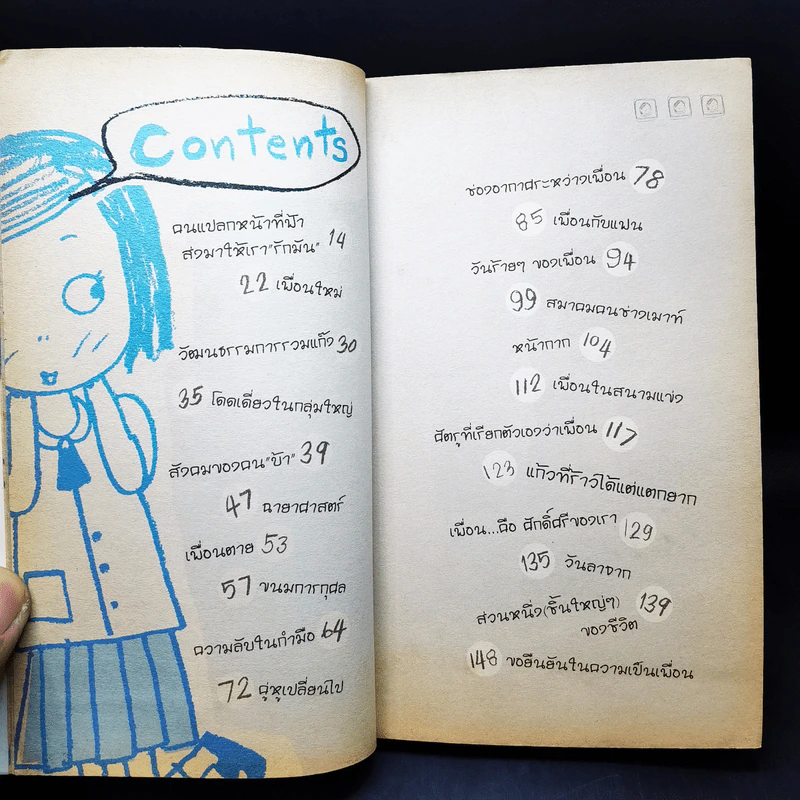 Contents
คนแปลกหน้าที่ฟ้า
ส่งมาให้เรา"รักมัน" 14
22 เพื่อนใหม่
วัฒนธรรมการรวมแก๊ง 30
35 โดดเดี่ยวในกลุ่มใหญ่
สังคมของคน"บ้า" 39
47 ฉายาศาสตร์
เพื่อนตาย 53
57 ขนมการกุศล
ความลับในกำมือ 64
72 คู่หูเปลี่ยนไป
ช่องอากาศระหว่างเพื่อน 78
85 เพื่อนกับแฟน
วันร้ายๆ ของเพื่อน 94
99 สมาคมคนช่างเมาท์
หน้ากาก 104
112 เพื่อนในสนามแข่ง
ศัตรูที่เรียกตัวเองว่าเพื่อน 117
123 แก้วที่ร้าวได้แต่แตกยาก
เพื่อน...คือ ศักดิ์ศรีของเรา 129
135 วันลาจาก
ส่วนหนึ่ง(ชิ้นใหญ่ๆ) 139
ของชีวิต
148 ขอยืนยันในความเป็นเพื่อน